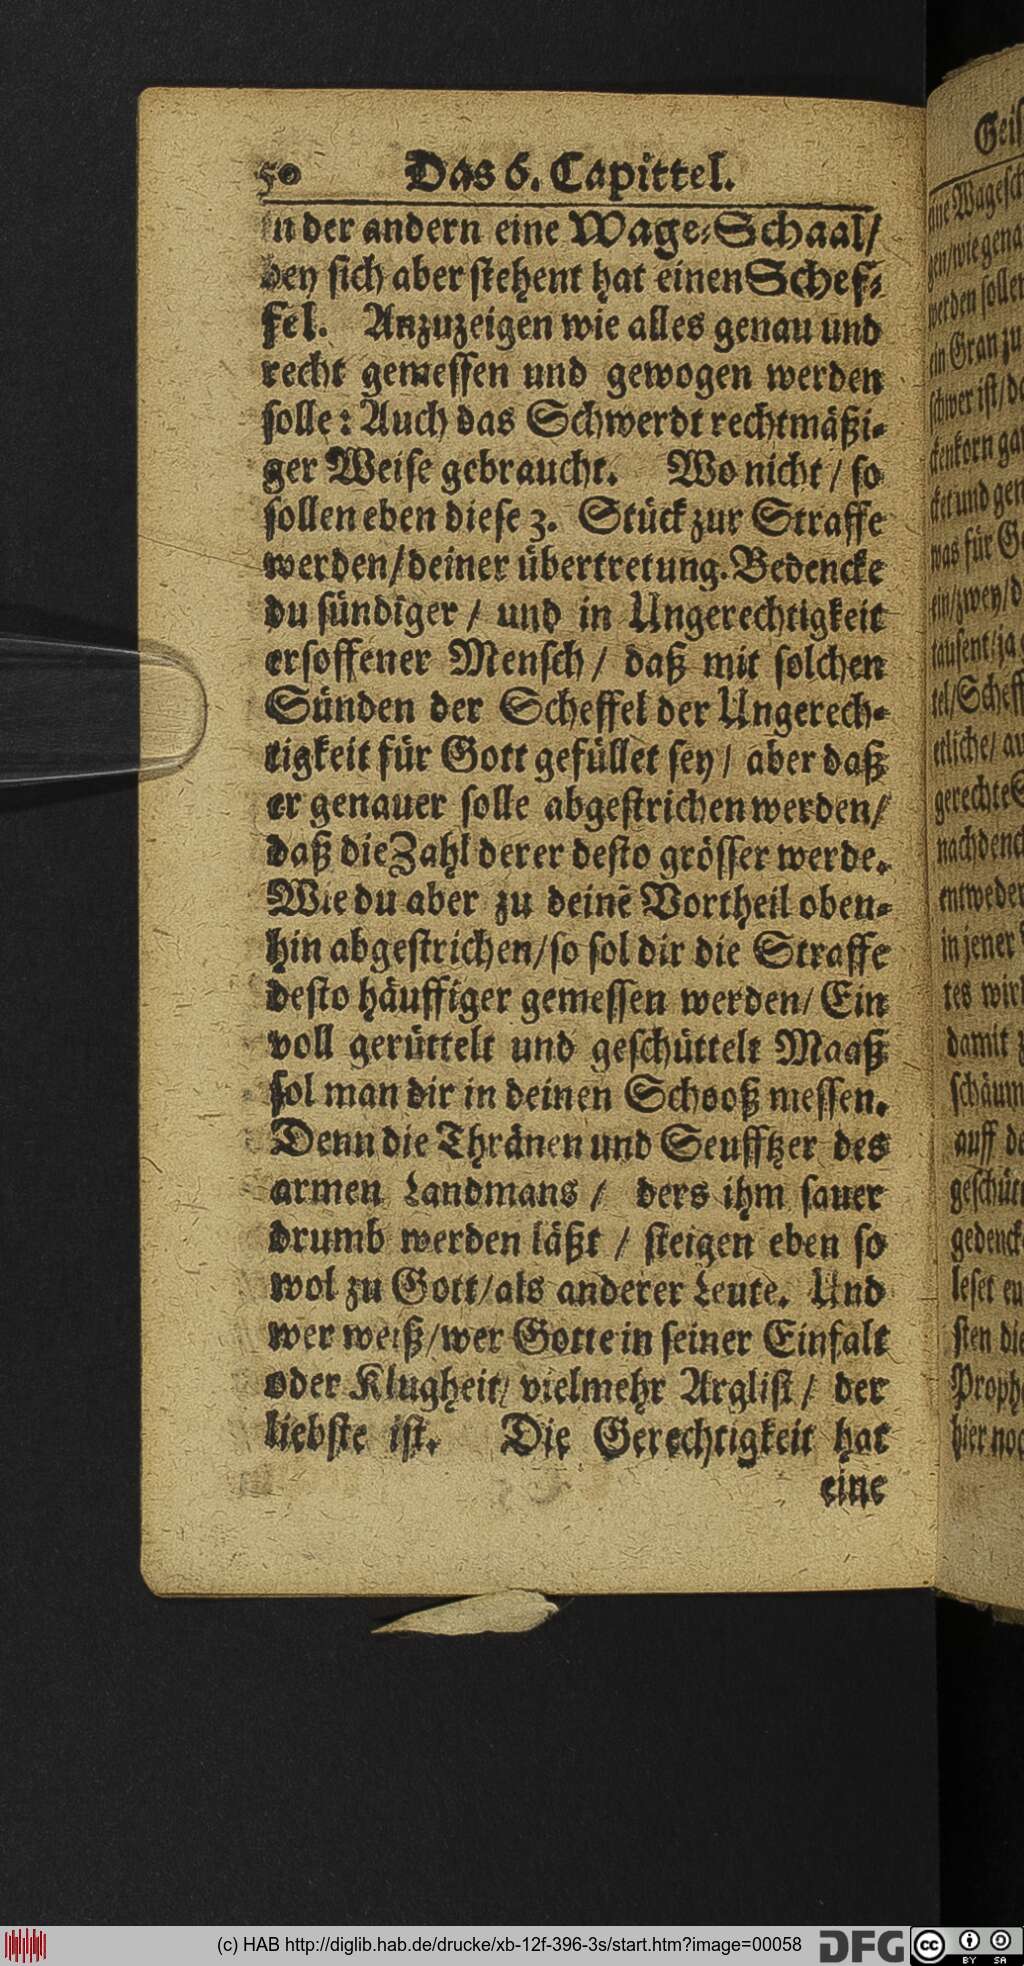 50 Das 6. Capittel.
in der andern eine Wage-Schaal/
bey sich aber stehent hat einen Schef-
fel. Anzuzeigen wie alles genau und
recht gemessen und gewogen werden
solle: Auch das Schwerdt rechtmäßi-
ger Weise gebraucht. Wo nicht / so
sollen eben diese 3. Stück zur Straffe
werden/ deiner übertretung. Bedencke
du sündiger / und in Ungerechtigkeit
ersoffener Mensch / daß mit solchen
Sünden der Scheffel der Ungerech-
tigkeit für Gott gefüllet sey / aber daß
er genauer solle abgestrichen werden/
daß die Zahl derer desto grösser werde.
Wie du aber zu deinē Vortheil oben-
hin abgestrichen/so sol dir die Straffe
desto häuffiger gemessen werden/ Ein
voll gerüttelt und geschüttelt Maaß
sol man dir in deinen Schooß messen.
Denn die Thränen und Seufftzer des
armen Landmans / ders ihm sauer
drumb werden läßt / steigen eben so
wol zu Gott/als anderer Leute. Und
wer weiß/wer Gott in seiner Einfalt
oder Klugheit/ vielmehr Arglist / der
liebste ist. Die Gerechtigkeit hat
eine
Geis
eine Wagesch
gen/wie gena
werden sollen
ein Gran zu
schwer ist/d
ckenkorn ga
cket und gen
was für G
ein/zwey/d
tausent/ja
tel/Scheff
etliche/ au
gerechte S
nachdenck
entweder
in jener
tes wir
damit z
schäum
auff de
geschüt
gedenck
leset eu
sten die
Proph
hier noc
(c) HAB http://diglib.hab.de/drucke/xb-12f-396-3s/start.htm?image=00058
DFG
cc BY SA